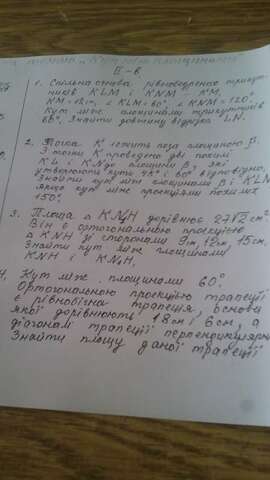 II - в
1. Спільна основа рівнобедрених трикут-
ників KLM і KNM - KM,
KM = 12см, ∠KLM = 60°, ∠KNM = 120°.
Кут між площинами трикутників
60°. Знайти довжину відрізка LN.
2. Точка K лежить поза площиною β.
З точки K проведено дві похилі
KL і KN до площини β, які
утворюють кути 45° і 60° відповідно.
Знайти кут між площинами β і KLN,
якщо кут між проекціями похилих
150°.
3. Площа △ KN₁H дорівнює 27√2 см².
Він є ортогональною проекцією
△ KNH зі сторонами 9см, 12см, 15см.
Знайти кут між площинами
KNH і KN₁H.
4. Кут між площинами 60°.
Ортогональною проекцією трапеції
є рівнобічна трапеція, основи
якої дорівнюють 18см і 6см, а
діагоналі трапеції перпендикулярні
Знайти площу даної трапеції